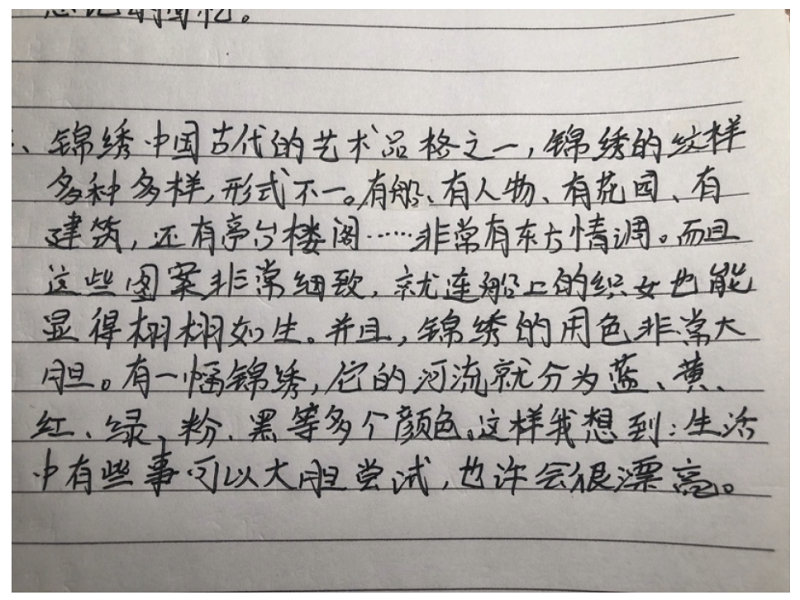 忘记的回忆。
、锦绣中国古代的艺术品格之一，锦绣的纹样
多种多样，形式不一。有船、有人物、有花园、有
建筑，还有亭台楼阁……非常有东方情调。而且
这些图案非常细致，就连船上的织女也能
显得栩栩如生。并且，锦绣的用色非常大
胆。有一幅锦绣，它的河流就分为蓝、黄、
红、绿、粉、黑等多个颜色。这样我想到：生活
中有些事可以大胆尝试，也许会很漂亮。